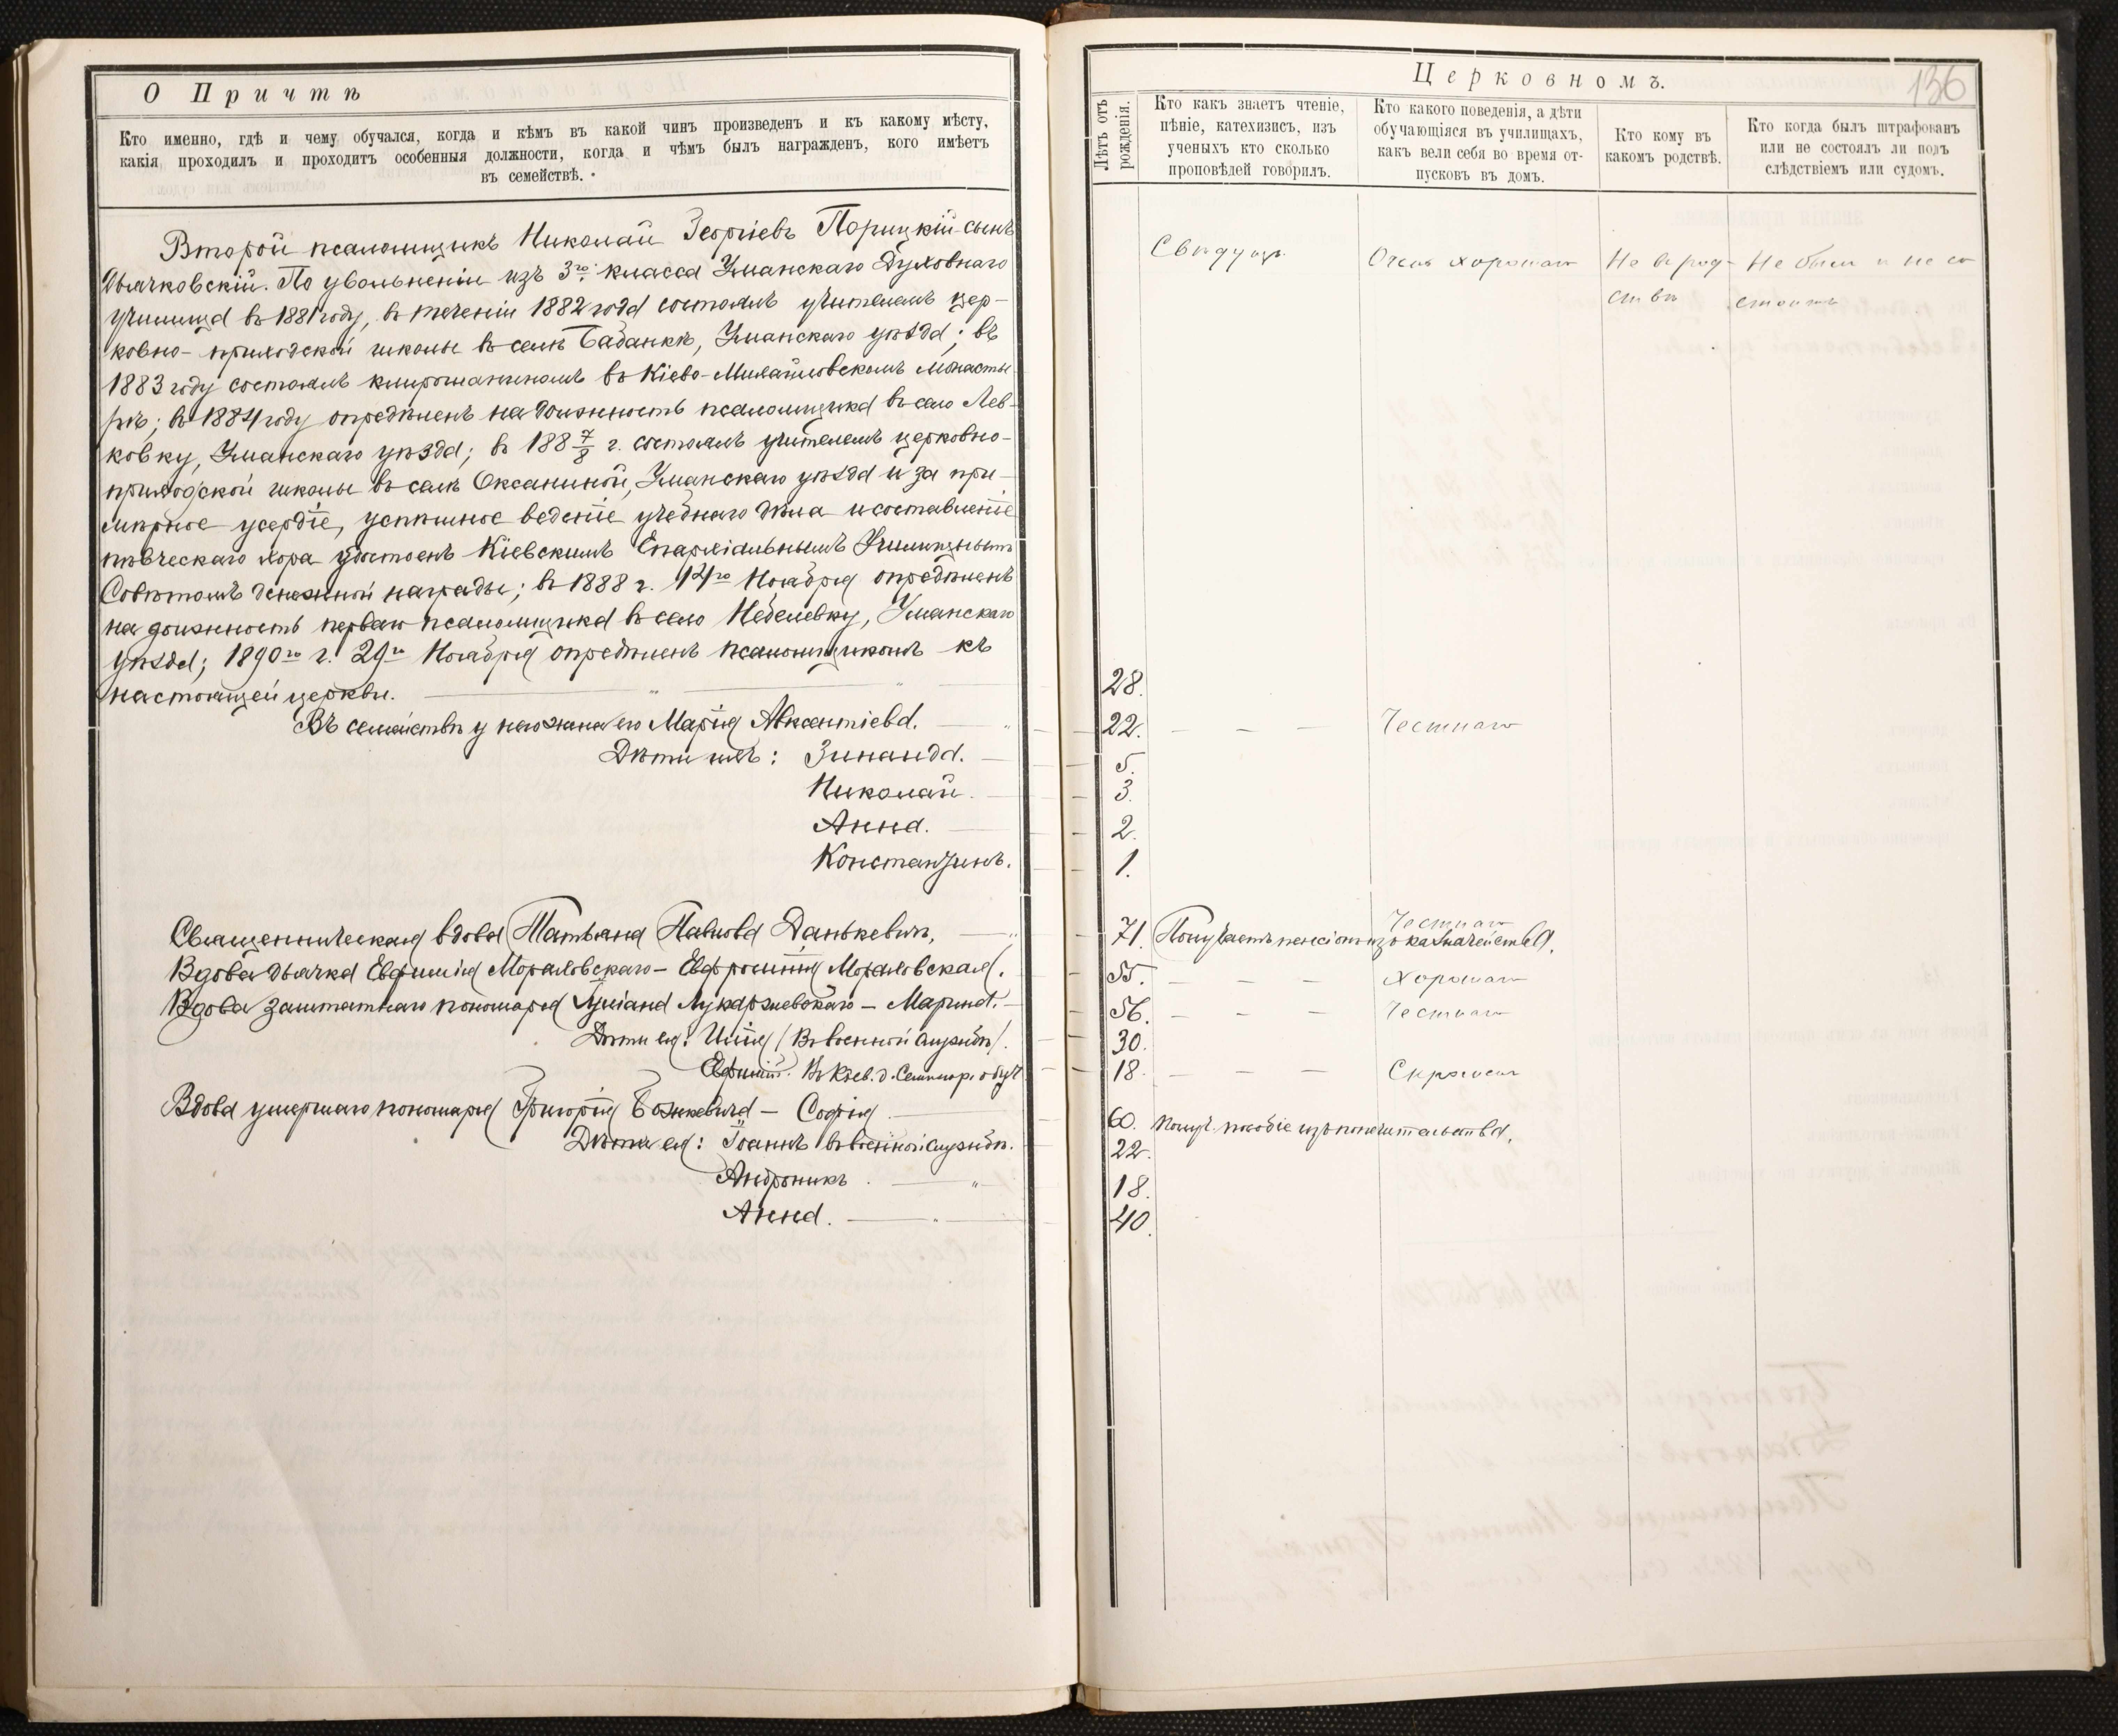 О Причтѣ
Кто именно, гдѣ и чему обучался, когда и кѣмъ въ какой чинъ произведенъ и къ какому мѣсту,
какія проходилъ и проходитъ особенныя должности, когда и чѣмъ былъ награжденъ, кого имѣетъ
въ семействѣ.
Второй псаломщикъ Николай Георгіевъ Порицкій сынъ
Дьячковскій. По увольненіи изъ 3го класса Уманскаго Духовнаго
училища въ 1881 году, въ теченіи 1882 года состоялъ учителемъ цер-
ковно-приходской школы въ селѣ Бабанкѣ, Уманскаго уѣзда; въ
1883 году состоялъ клирошаниномъ въ Кіево-Михайловскомъ Монасты-
рѣ; въ 1884 году опредѣленъ на должность псаломщика въ село Лев-
ковку, Уманскаго уѣзда; въ 188 7/8 г. состоялъ учителемъ церковно-
приходской школы въ селѣ Оксаниной, Уманскаго уѣзда и за при-
мѣрное усердіе, успѣшное веденіе учебнаго дѣла и составленіе
пѣвческаго хора удостоенъ Кіевскимъ Епархіальнымъ Училищнымъ
Совѣтомъ денежной награды; въ 1888 г. 14го Ноября опредѣленъ
на должность перваго псаломщика въ село Небелевку, Уманскаго
уѣзда; 1890го г. 29го Ноября опредѣленъ псаломщикомъ къ
настоящей церкви.
Въ семействѣ у него жена его Марія Авксентіева.
Дѣти ихъ: Зинаида.
Николай.
Анна.
Константинъ.
Священническая вдова Татьяна Павлова Данькевичъ,
Вдова дьячка Евфимія Мораловскаго - Евфросинія Мораловская.
Вдова заштатнаго пономаря Луціана Лукаржевскаго - Марина.
Дѣти ея: Илія (Въ военной службѣ).
Евфимій. Въ Кіев. д. Семинар. обуч.
Вдова умершаго пономаря Григорія Божкевича - Софія
Дѣти ея: Іоаннъ въ военной службѣ.
Андроникъ.
Анна.
Церковномъ.
136
Лѣтъ отъ
рожденія.
Кто какъ знаетъ чтеніе,
пѣніе, катехизисъ, изъ
ученыхъ кто сколько
проповѣдей говорилъ.
Кто какого поведенія, а дѣти
обучающіяся въ училищахъ,
какъ вели себя во время от-
пусковъ въ домъ.
Кто кому въ
какомъ родствѣ.
Кто когда былъ штрафованъ
или не состоялъ ли подъ
слѣдствіемъ или судомъ.
Свѣдущъ
Очень хорошаго
Не въ род-
ствѣ
Не былъ и не со
стоитъ
28.
22. Честнаго
5.
3.
2.
1.
71. Получаетъ пенсію изъ казначейства. Честнаго
55. Хорошаго
56. Честнаго
30.
18. Скромн
60. Получ. пособіе изъ попечительства.
22.
18.
40.